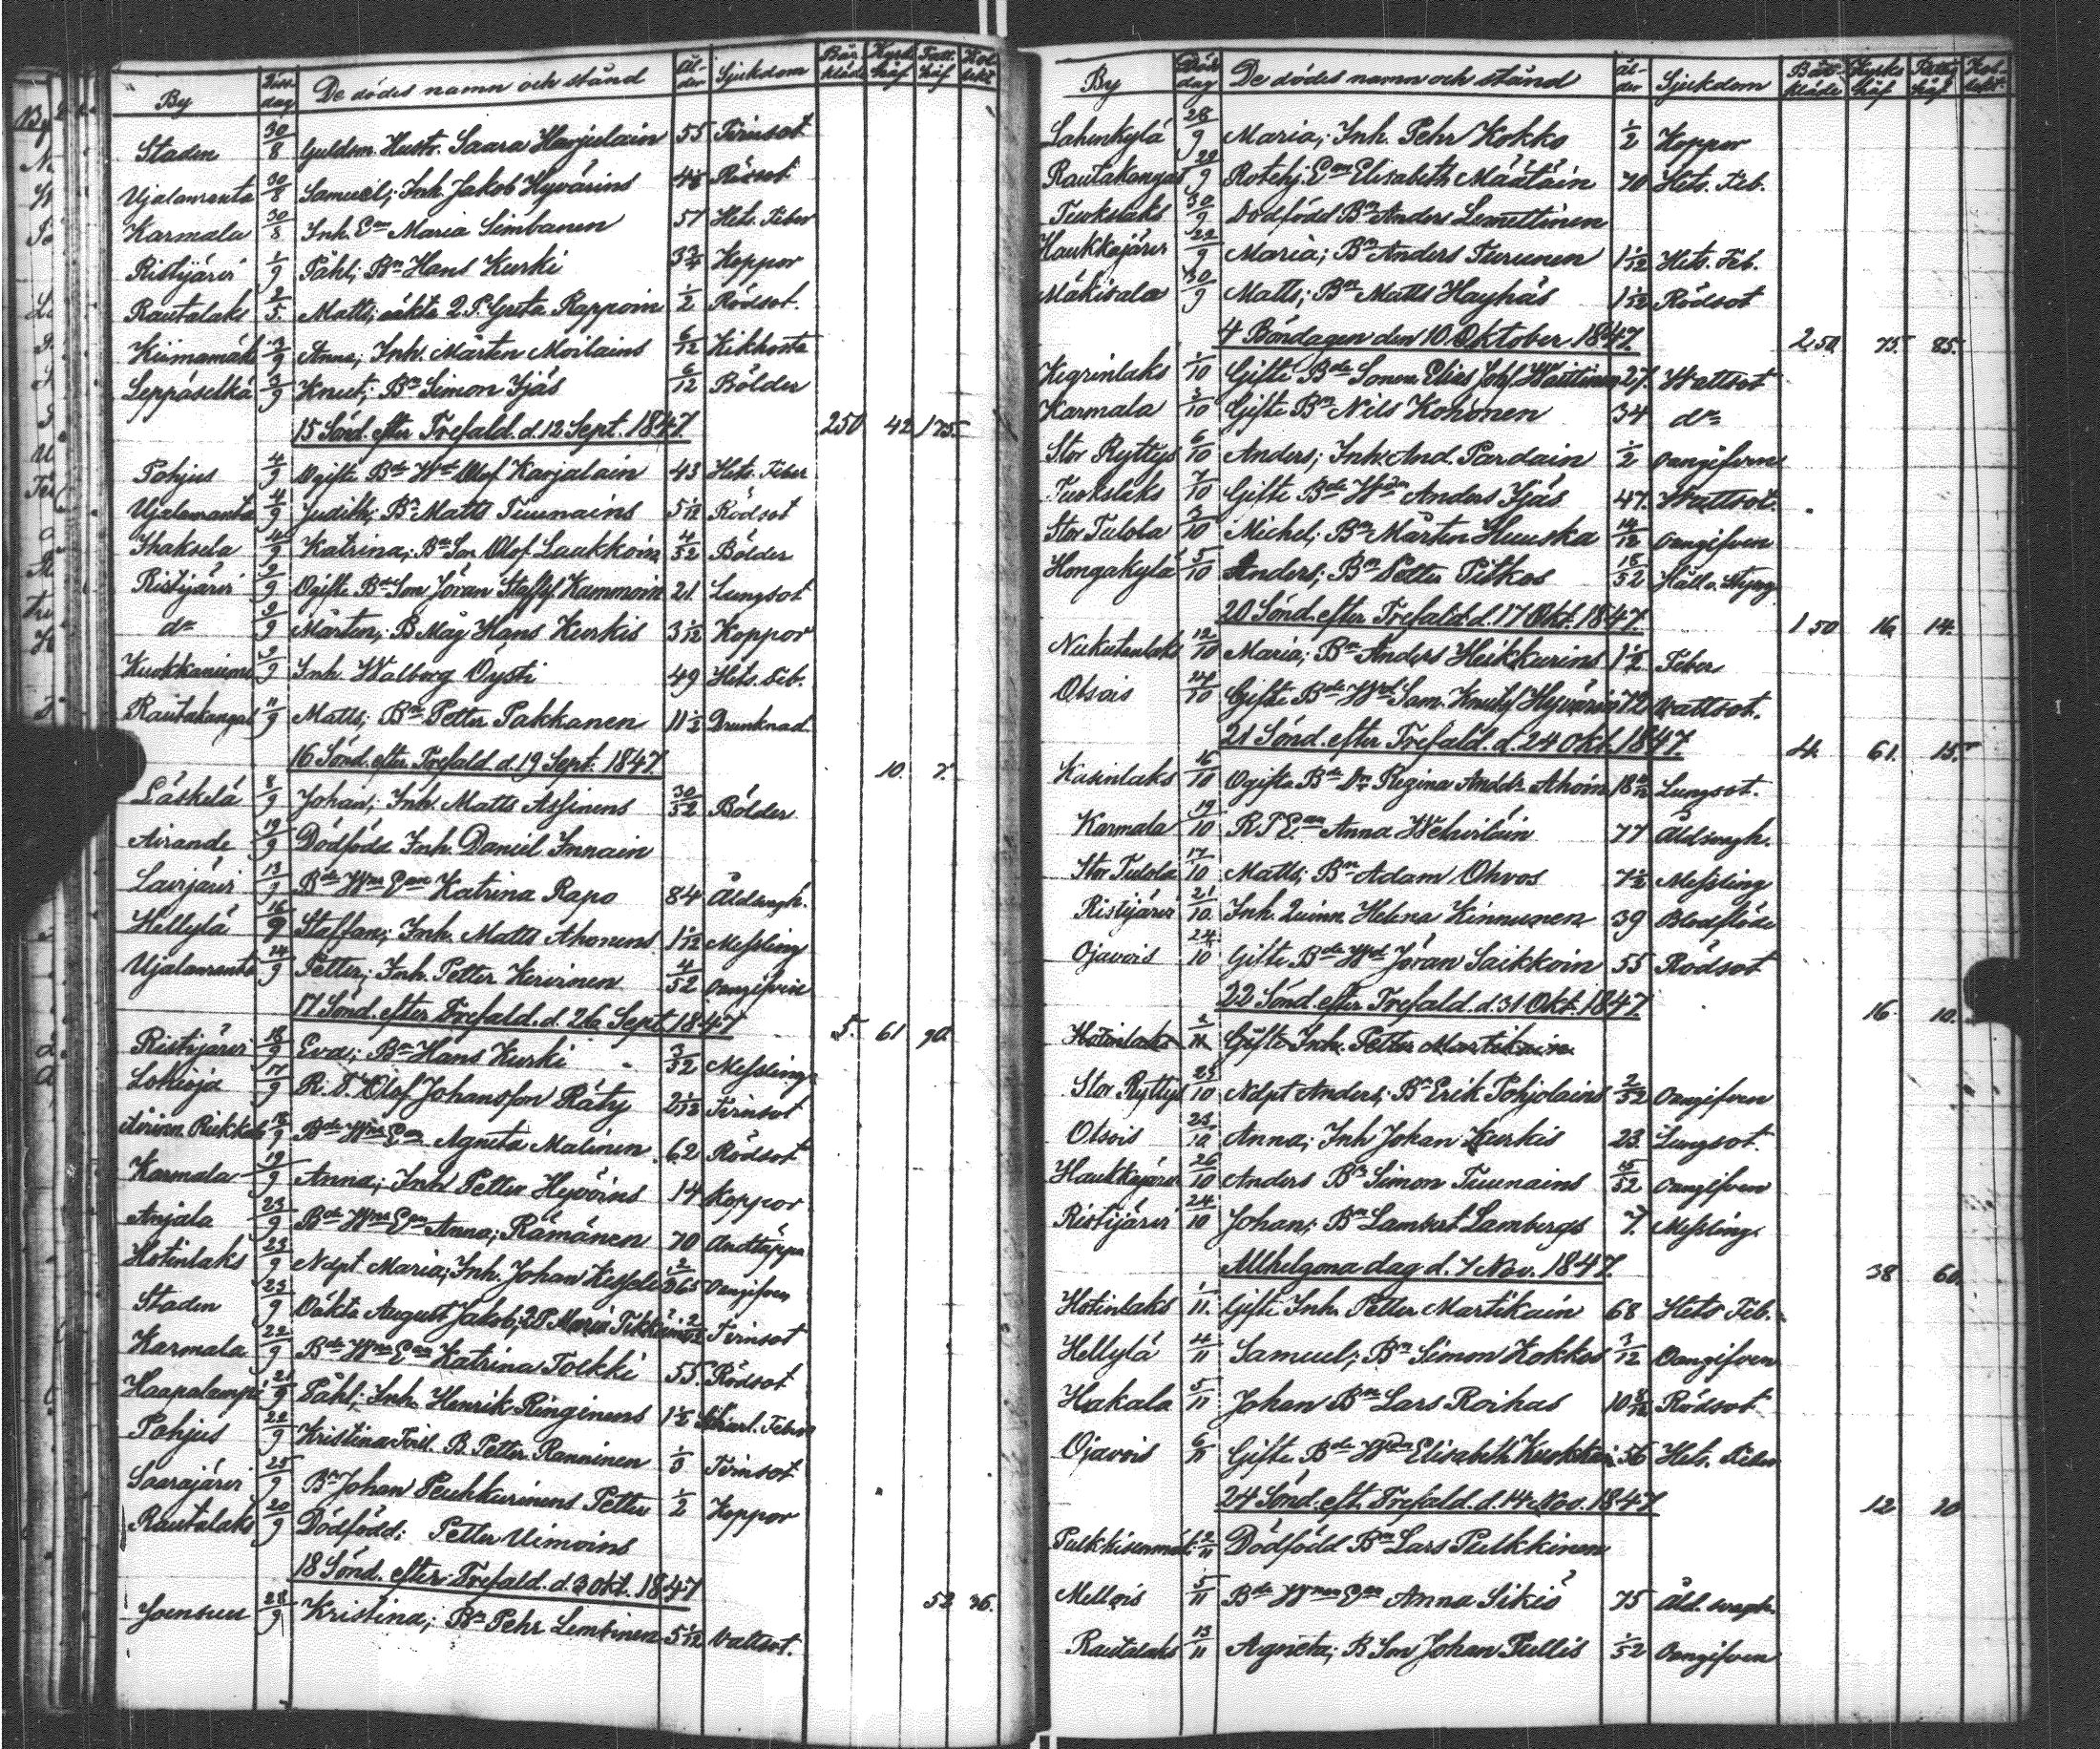 By Död. dag De dödes namn och stånd Ål- der Sjukdom Bår kläde Kyrk håf. Fatt. håf Kol- lekt
Staden 30/8 Guldsm. Hustr. Saara Harjulain 55 Tvinsot
Ujalanranta 30/8 Samuel; Inh. Jakob Hyvärins Rödsot
Karmala 30/8 Inh. Ean Maria Simbanen 57 Hets. Feber
Ristijärvi 1/9 Påhl; Bn Hans Kurki 3 3/4 Koppor
Rautalaks 2/5. Matts; oäkta Q.P. Greta Rappoin 1/2 Rödsot.
Kiimamäki 3/9 Anna; Inh. Mårten Moilains 6/12 Kikhosta
Leppäselkä 3/9 Knut; Bn Simon Ijäs 6/12 Bölder
15 Sönd. efter Trefald. d. 12 Sept. 1847. 250 42 175.
Pohjus 4/9 Ogifte Bde Wd Olof Karjalain 43 Hets. Feber
Ujalanranta 4/9 Judith; Bn Matts Tuunains 5 1/12 Rödsot
Ihaksela 4/9 Katrina; Bde Son Olof Laukkoin 4/52 Bölder
Ristijärvi 9/9 Ogifte Bde Son Jöran Staffsf. Kammoin 21. Lungsot
do 9/9 Mårten; B Måg Hans Kurkis 3 1/12 Koppor
Kuokkaniemi 9/9 Inh. Walborg Öysti 49 Hets. Feb.
Rautakangas 11/9 Matts; Bn Petter Pakkanen 11 1/2 Drunknad.
16 Sönd. efter Trefald. d. 19 Sept. 1847. 10. 7.
Läskelä 8/9 Johan; Inh. Matts Assinens 30/52 Bölder
Airanne 19/9 Dödfödd Inh. Daniel Innain
Lavijärvi 13/9 Bde Wns Ean Katrina Rapo 84 Ålderdomsvagh.
Hellylä 16/9 Staffan; Inh. Matts Ahonens 1 1/12 Messling
Ujalanranta 24/9 Petter; Inh. Petter Kervinen 4/52 Oangifven
17 Sönd. efter Trefald. d. 26 Sept. 1847 5. 61 90.
Ristijärvi 18/9 Eva; Bn Hans Kurki 3/52 Messling
Lohioja 17/9 R. T. Olof Johansson Räty 2 1/12 Tvinsot
Riekkala 18/9 Bde Wns Ean Agneta Malinen 62 Rödsot
Karmala 19/9 Anna; Inh Petter Hyvöins 14 Koppor
Anjala 23/9 Bde Wns Ean Anna; Rämänen 70 Andtäppa
Hotinlaks 23/9 Ndpt Maria; Inh. Johan 2/365 Oangifven
Staden 23/9 Oäkta August Jakob; QP Maria Tikkain Tvinsot
Karmala 22/9 Bde Wns Ean Katrina Tolkki 55. Rödsot
Haapalampi 21/9 Påhl; Inh. Henrik Ringinens 1 1/2 Skarl. Feber
Pohjus 22/9 Kristina B. Petter Ranninen Tvinsot
Saarajärvi 25/9 Bn Johan Peuhkurinens Petter 1/2 Koppor
Rautalaks 20/9 Dödfödd: Petter Uimoins
18 Sönd. efter Trefald. d. 3 Okt. 1847 52 36.
Joensuu 28/9 Kristina; Bn Pehr Lembinen 5 1/12 Vattsot.
By Död dag De dödes namn och stånd ål- der Sjukdom Bår- kläde Kyrko håf. Fattig håf Kol- lekt.
Lahenkylä 28/9 Maria; Inh. Pehr Kokko 1/2 Koppor
Rautakangas 29/9 Rotehj. Ean Elisabeth Määtäin 70 Hets. Feb.
Tuokslaks 30/9 Dödfödd Bn Anders Lemettinen
Haukkajärvi 22/9 Maria; Bn Anders Turunen 1 1/12 Hets. Feb.
Mäkisalo 30/9 Matts; Bn Matts Hayhäs 1 1/52 Rödsot
4 Böndagen den 10 Oktober 1847. 2 50 75. 85.
Kegrinlaks 1/10 Gifte Bde Sonen Elias Johsf Wäittinen 27. Wattsot
Karmala 2/10 Gifte Bn Nils Kohonen 34 do
Stor Ryttys 6/10 Anders; Inh. And. Pardain 1/2 Oangifven
Tuokslaks 7/10 Gifte Bde Wdn Anders Ijäs 47. Wattsot.
Stor Tulola 3/10 Michel; Bn Mårten Huuska 14/12 Oangifven
Hongakylä 5/10 Anders; Bn Petter Pitkos 18/52 Håll o. Styng
20 Sönd. efter Trefald. d. 17 Okt. 1847. 1 50 16 14.
Nukutanlaks 12/10 Maria; Bn Anders Heikkurins 1 1/2 Feber
Otsois 14/10 Gifte Bde Wd Sam. Knutsf Hyvärin 72 Vattsot.
21 Sönd. efter Trefald. d. 24 Okt. 1847. 4. 61. 15.
Kasinlaks 16/10 Ogifta Bde Dr Regina Andsdr. Ahoin 18 Lungsot.
Karmala 19/10 R.P Ean Anna Wehviläin 77 Åldersvagh.
Stor Tulola 17/10 Matts; Bn Adam Ohvos 7 1/2 Messling
Ristijärvi 21/10. Inh. Quinn. Helena Kinnunen 39 Blodflöde
Ojavois 24/10 Gifte Bde Wd Jöran Saikkoin 55 Rödsot
22 Sönd. efter Trefald d. 31 Okt. 1847. 16. 10.
Hotinlaks 2/11 Gifte Inh. Petter Martikain
Stor Ryttys 23/10 Ndpt Anders; Bn Erik Pohjolains 2/52 Oangifven
Otsois 23/10 Anna; Inh Johan Kurkis 23. Lungsot.
Haukkajärvi 26/10 Anders Bn Simon Tuunains 15/52 Oangifven
Ristijärvi 24/10 Johan; Bn Lambert Lambergs 7. Messling.
Allhelgona dag d. 7 Nov. 1847. 38 60.
Hotinlaks 1/11. Gifte Inh. Petter Martikain 68 Hets Feb.
Hellylä 4/11 Samuel; Bn Simon Kokkos 3/12 Oangifven
Hakala 5/11 Johan Bn Lars Roihas 10 Rödsot
Ojavois 6/11 Gifte Bde Wdn Elisabeth Kuokkain 56 Hets. Feber
24 Sönd. eft. Trefald. d. 14 Nov. 1847. 12 20
Pulkkisenmäki 2/11 Dödfödd Bn Lars Pulkkinen
Mellois 5/11 Bde Wnes Ean Anna Sikiö 75 Åld. svagh.
Rautalaks 13/11 Agneta; B Son Johan Pullis 1/52 Oangifven